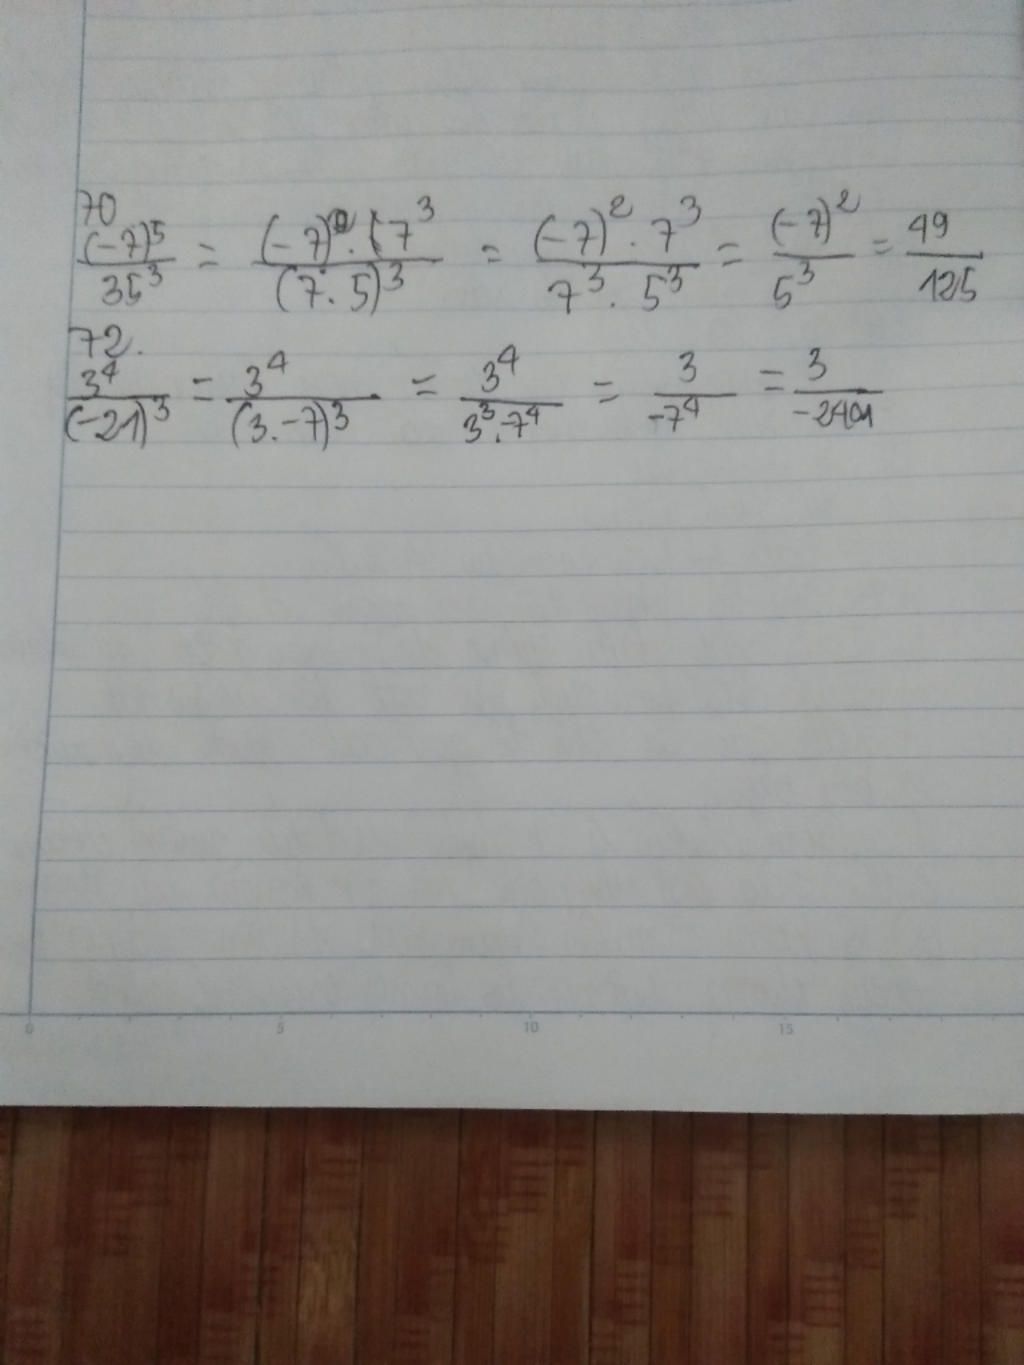 70
(-7)⁵/35³ = (-7)² · (7³/(7·5)³ = (-7)² · 7³/7³ · 5³ = (-7)²/5³ = 49/125
72.
3⁴/(-21)³ = 3⁴/(3.-7)³ = 3⁴/3³.-7⁴ = 3/-7⁴ = 3/-2401
0 5 10 15